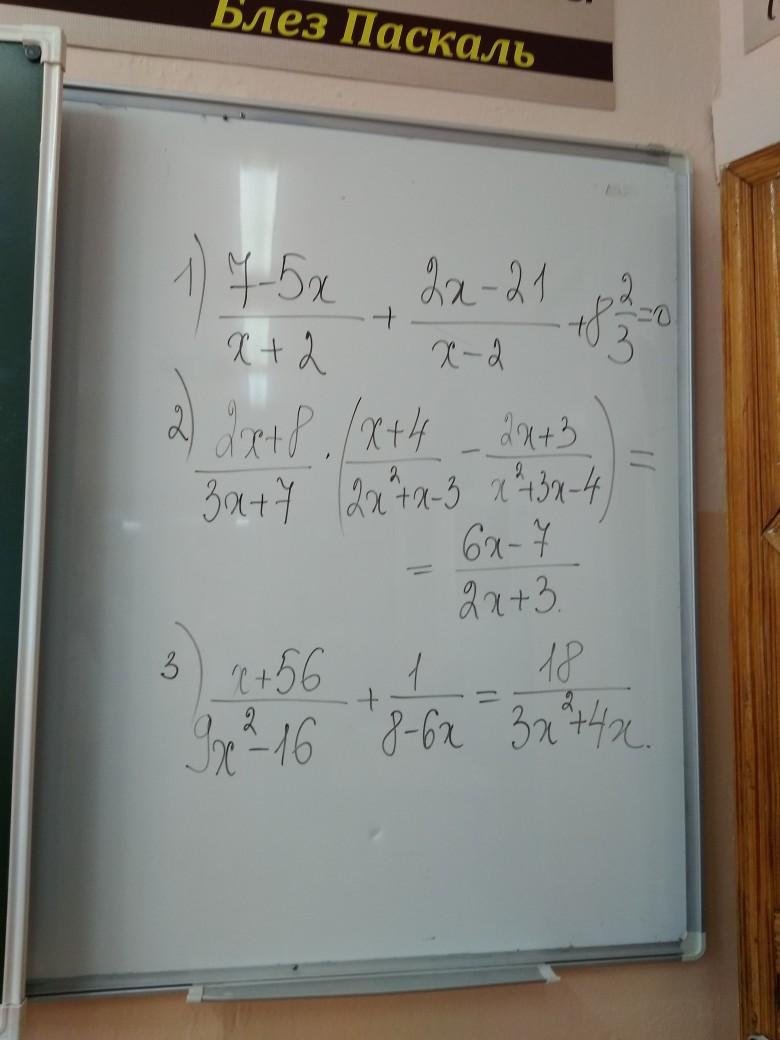 Блез Паскаль
1) (7-5x)/(x+2) + (2x-21)/(x-2) + 8 2/3 = 0
2) (2x+8)/(3x+7) · ((x+4)/(2x²+x-3) - (2x+3)/(x²+3x-4)) =
= (6x-7)/(2x+3).
3) (x+56)/(9x²-16) + 1/(8-6x) = 18/(3x²+4x).